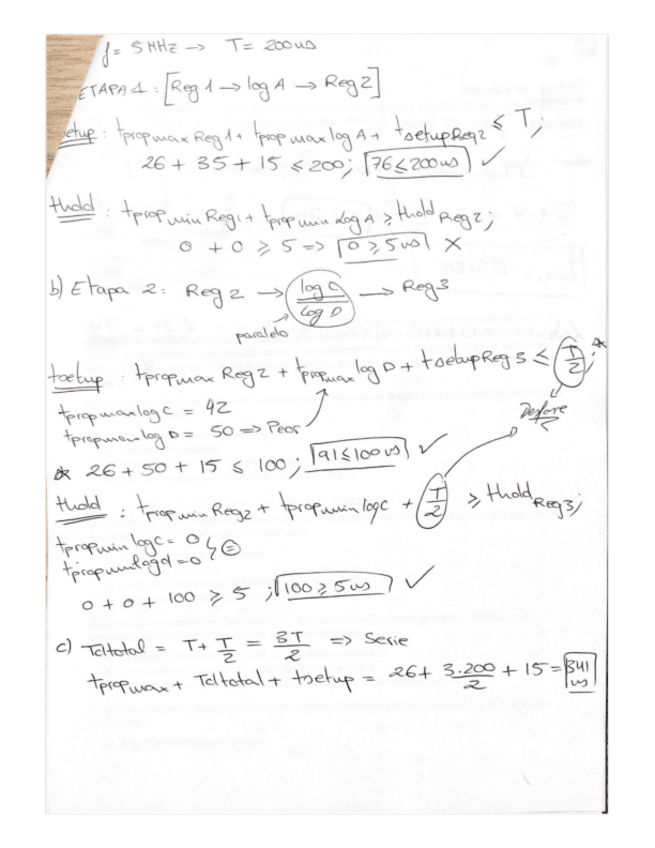 f = 5 MHz → T = 200 us
ETAPA 1 : [Reg 1 → log A → Reg 2]
Setup : tpropmax Reg 1 + tpropmax log A + tsetup Reg2 ≤ T;
26 + 35 + 15 ≤ 200; 76 ≤ 200 us ✓
thold : tpropmin Reg1 + tpropmin Log A ≥ thold Reg2;
0 + 0 ≥ 5 => 0 ≥ 5 us X
b) Etapa 2: Reg 2 → log C / Log D → Reg 3
paralelo
tsetup : tpropmax Reg 2 + tpropmax log D + tsetup Reg 3 ≤ T/2; *
tpropmax log C = 42
Desfase
tpropmax log D = 50 => Peor
* 26 + 50 + 15 ≤ 100; 91 ≤ 100 us ✓
thold : tpropmin Reg2 + tpropmin logC + T/2 ≥ thold Reg3;
tpropmin log C = 0
tpropmin logd = 0 =
0 + 0 + 100 ≥ 5 ; 100 ≥ 5 us ✓
c) Tcltotal = T + T/2 = 3T/2 => Serie
tpropmax + Tcltotal + tsetup = 26 + 3·200/2 + 15 = 341 us